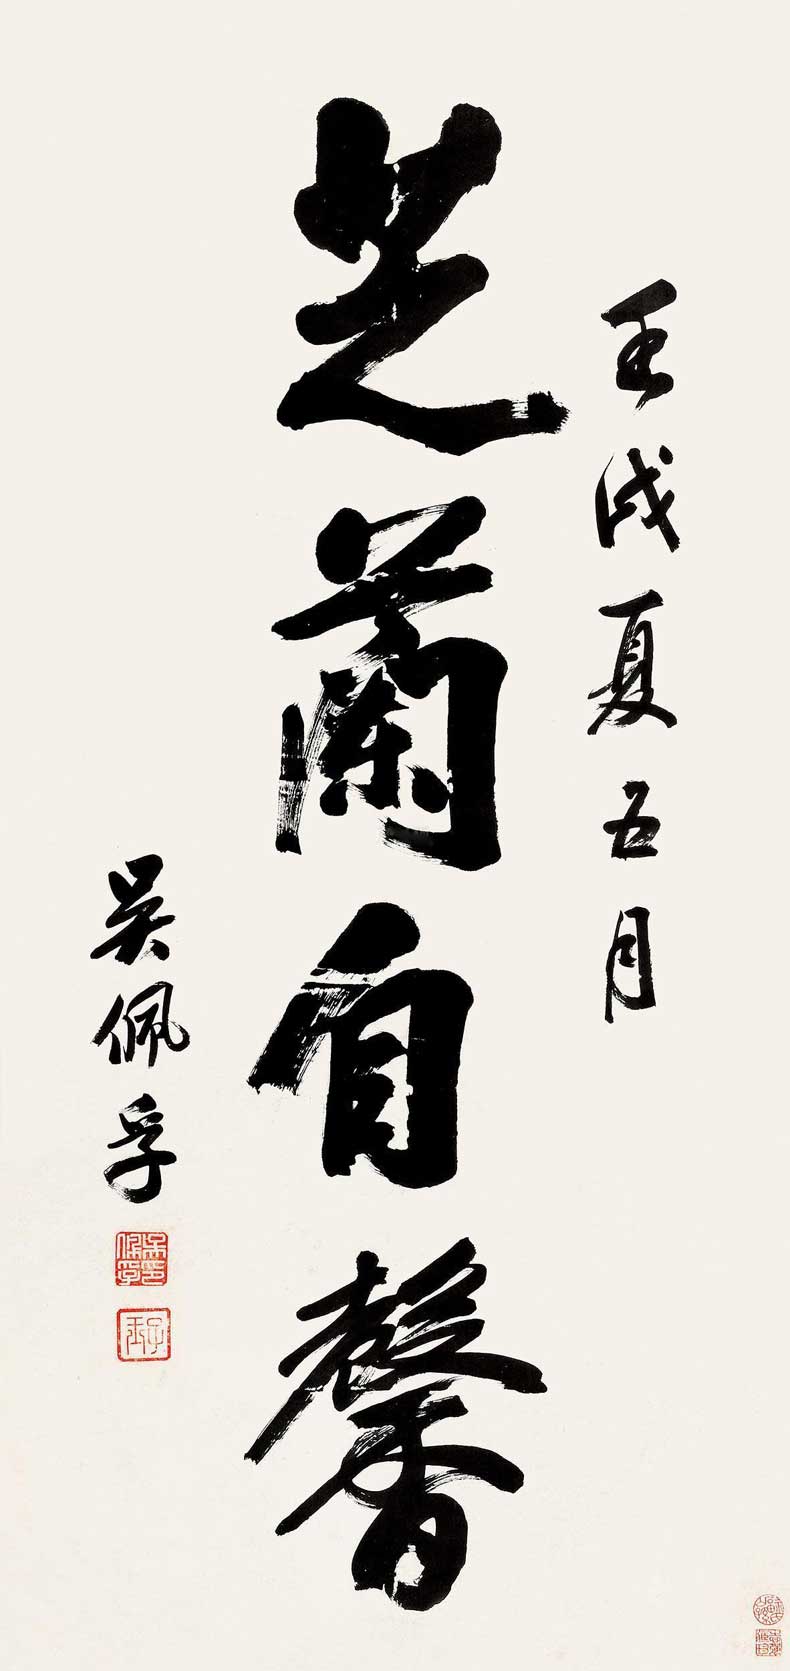 壬戌夏五月
芝蘭自馨
吳佩孚
吳佩孚印
子玉